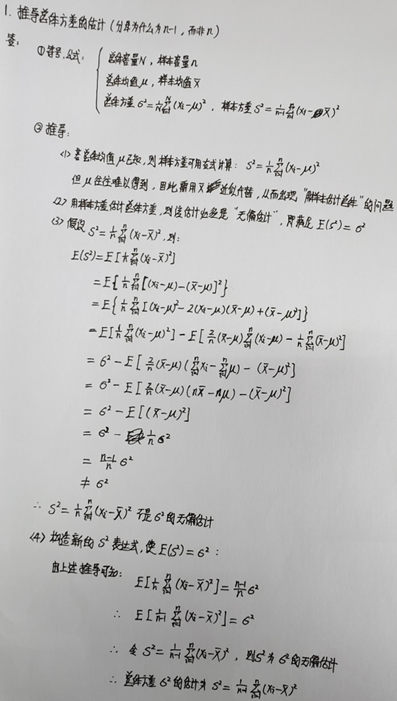 1. 推导总体方差的估计 (分母为什么为n-1,而非n)
答:
① 符号、公式: { 总体容量N, 样本容量n
总体均值μ, 样本均值x̄
总体方差 σ²=1/N Σ(i=1→N)(xᵢ-μ)², 样本方差 S²=1/(n-1) Σ(i=1→n)(xᵢ-x̄)²
② 推导:
(1) 若总体均值μ已知,则样本方差可用右式计算: S²=1/n Σ(i=1→n)(xᵢ-μ)²
但μ往往难以得到,因此需用x̄近似代替,从而出现"用样本估计总体"的问题
(2) 用样本方差估计总体方差,则该估计必须是"无偏估计",即满足 E(S²)=σ²
(3) 假设 S²=1/n Σ(i=1→n)(xᵢ-x̄)², 则:
E(S²)=E[1/n Σ(i=1→n)(xᵢ-x̄)²]
=E{1/n Σ(i=1→n)[(xᵢ-μ)-(x̄-μ)]²}
=E{1/n Σ(i=1→n)[(xᵢ-μ)²-2(xᵢ-μ)(x̄-μ)+(x̄-μ)²]}
=E[1/n Σ(i=1→n)(xᵢ-μ)²]-E[2/n(x̄-μ)Σ(i=1→n)(xᵢ-μ)-1/n Σ(i=1→n)(x̄-μ)²]
=σ²-E[2/n(x̄-μ)(Σ(i=1→n)xᵢ-Σ(i=1→n)μ)-(x̄-μ)²]
=σ²-E[2/n(x̄-μ)(nx̄-nμ)-(x̄-μ)²]
=σ²-E[(x̄-μ)²]
=σ²-1/n σ²
=(n-1)/n σ²
≠σ²
∴ S²=1/n Σ(i=1→n)(xᵢ-x̄)² 不是σ²的无偏估计
(4) 构造新的S²表达式,使E(S²)=σ²:
由上述推导可知: E[1/n Σ(i=1→n)(xᵢ-x̄)²]=(n-1)/n σ²
∴ E[1/(n-1) Σ(i=1→n)(xᵢ-x̄)²]=σ²
∴ 令 S²=1/(n-1) Σ(i=1→n)(xᵢ-x̄)², 则S²为σ²的无偏估计
∴ 总体方差σ²的估计为 S²=1/(n-1) Σ(i=1→n)(xᵢ-x̄)²